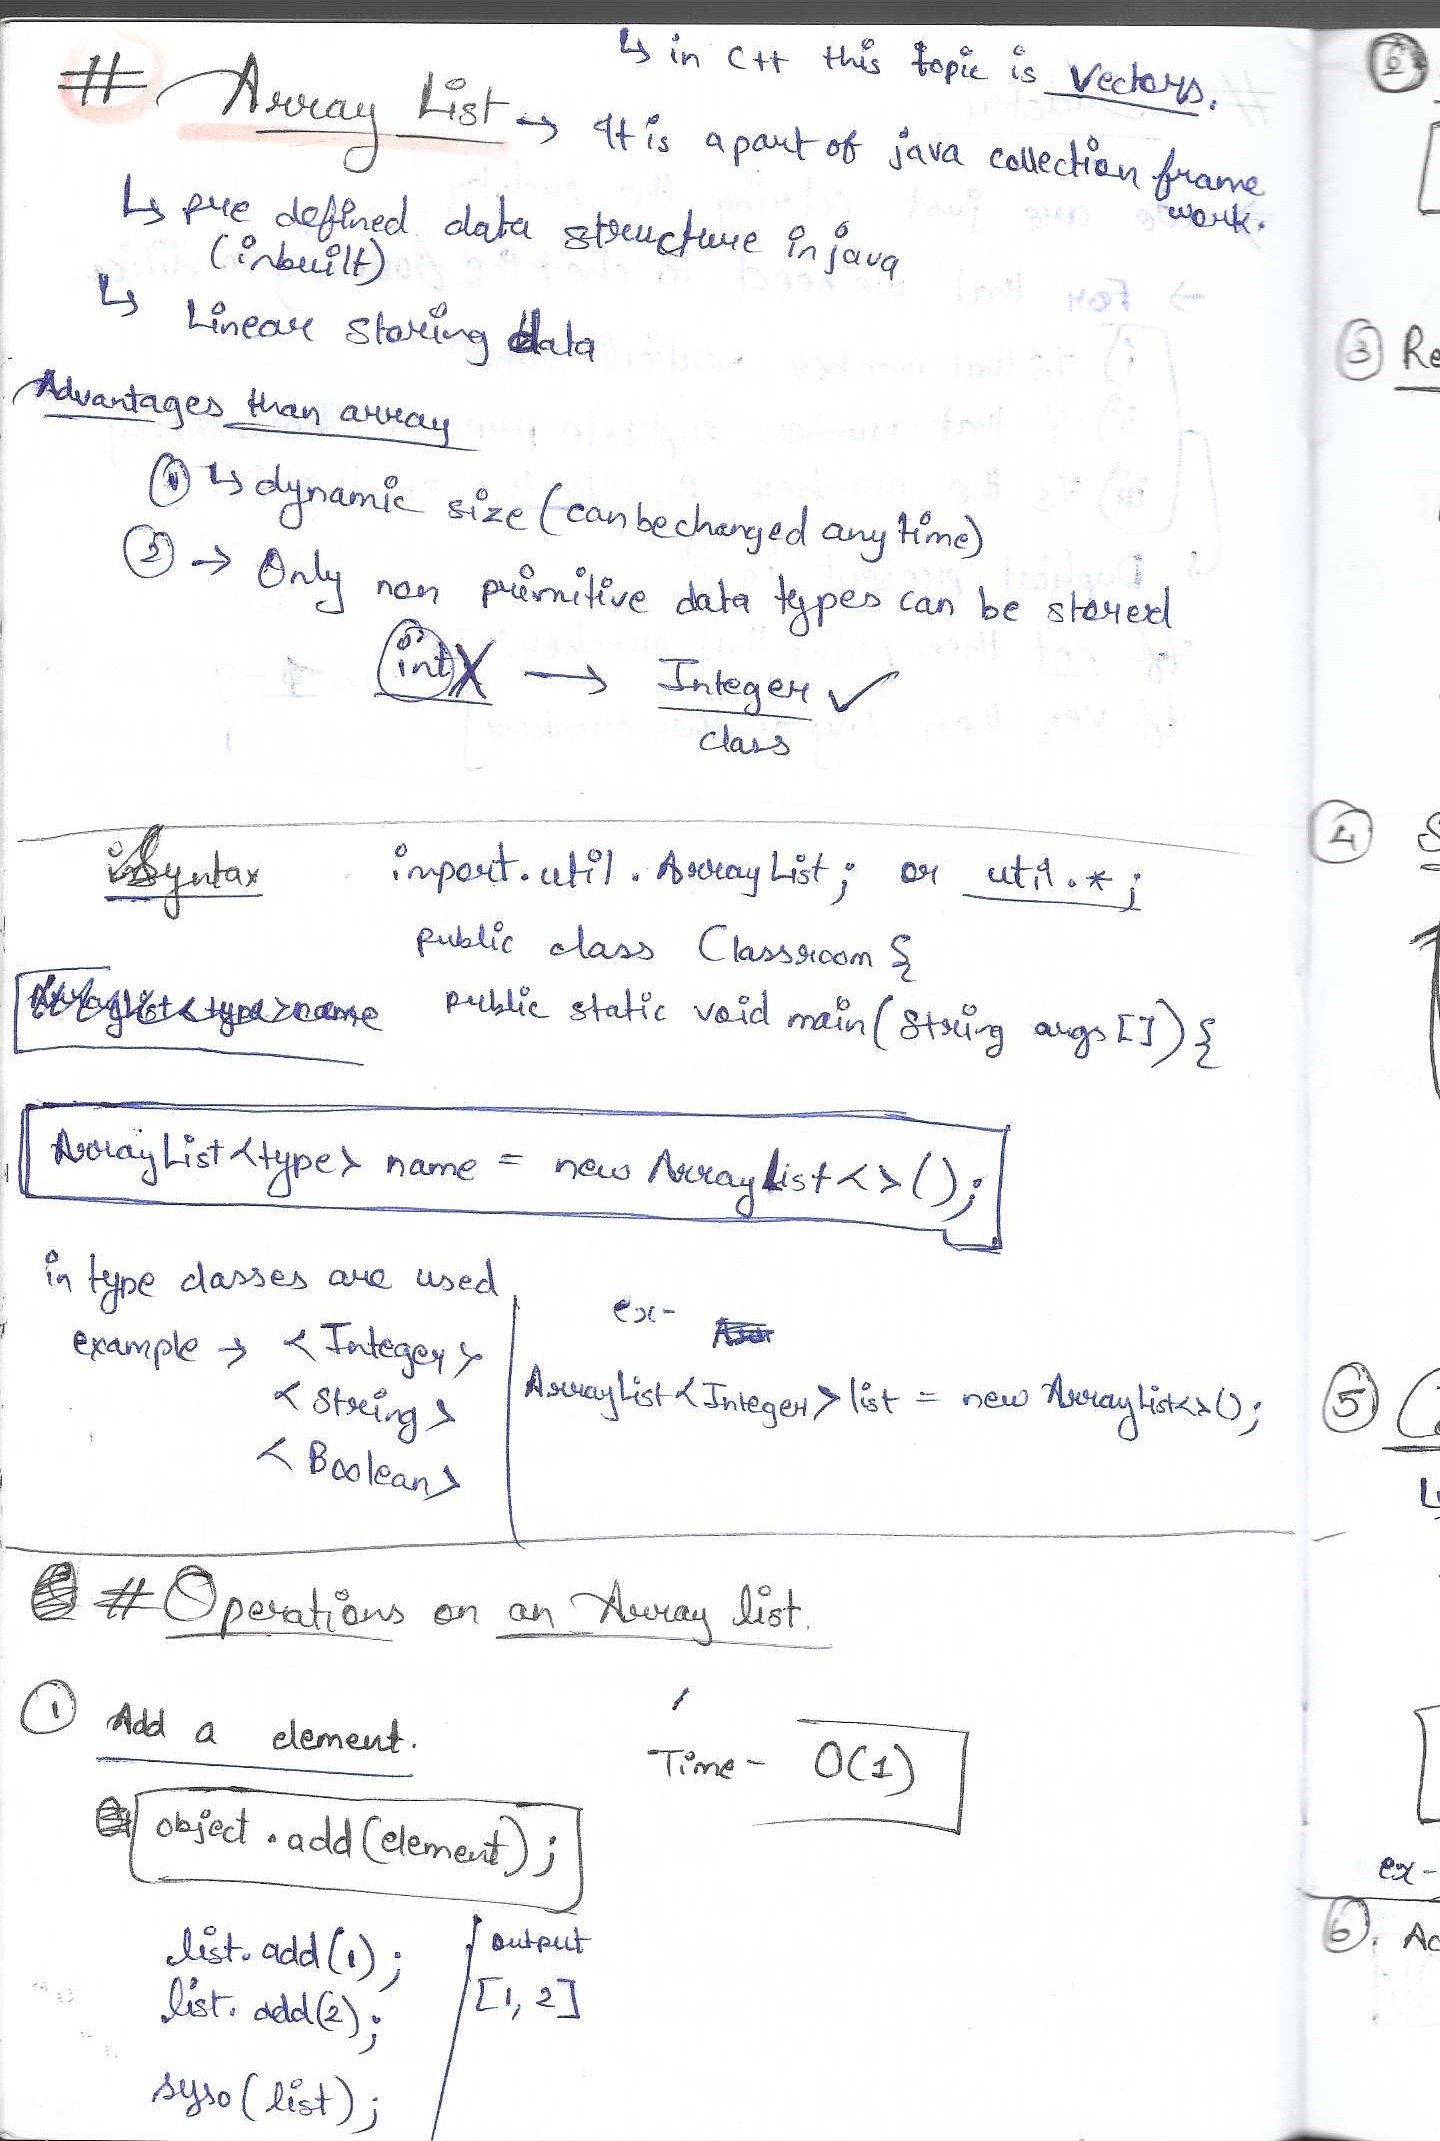 ↳ in C++ this topic is Vectors.
# Array List → It is a part of java collection frame
work.
↳ pre defined data structure in java
(inbuilt)
↳ Linear storing data
Advantages than array
① ↳ dynamic size (can be changed any time)
② → Only non primitive data types can be stored
int X → Integer ✓
class
Syntax import.util.ArrayList; or util.*;
public class Classroom {
ArrayList<type>name public static void main(String args[]) {
ArrayList<type> name = new ArrayList<>();
in type classes are used
example → <Integer>
<String>
<Boolean>
ex-
ArrayList<Integer>list = new ArrayList<>();
# Operations on an Array list.
① Add a element.
Time - O(1)
object.add(element);
list.add(1);
list.add(2);
syso(list);
output
[1, 2]
⑥
③ Re
④ S
⑤
ex-
⑥. Ac